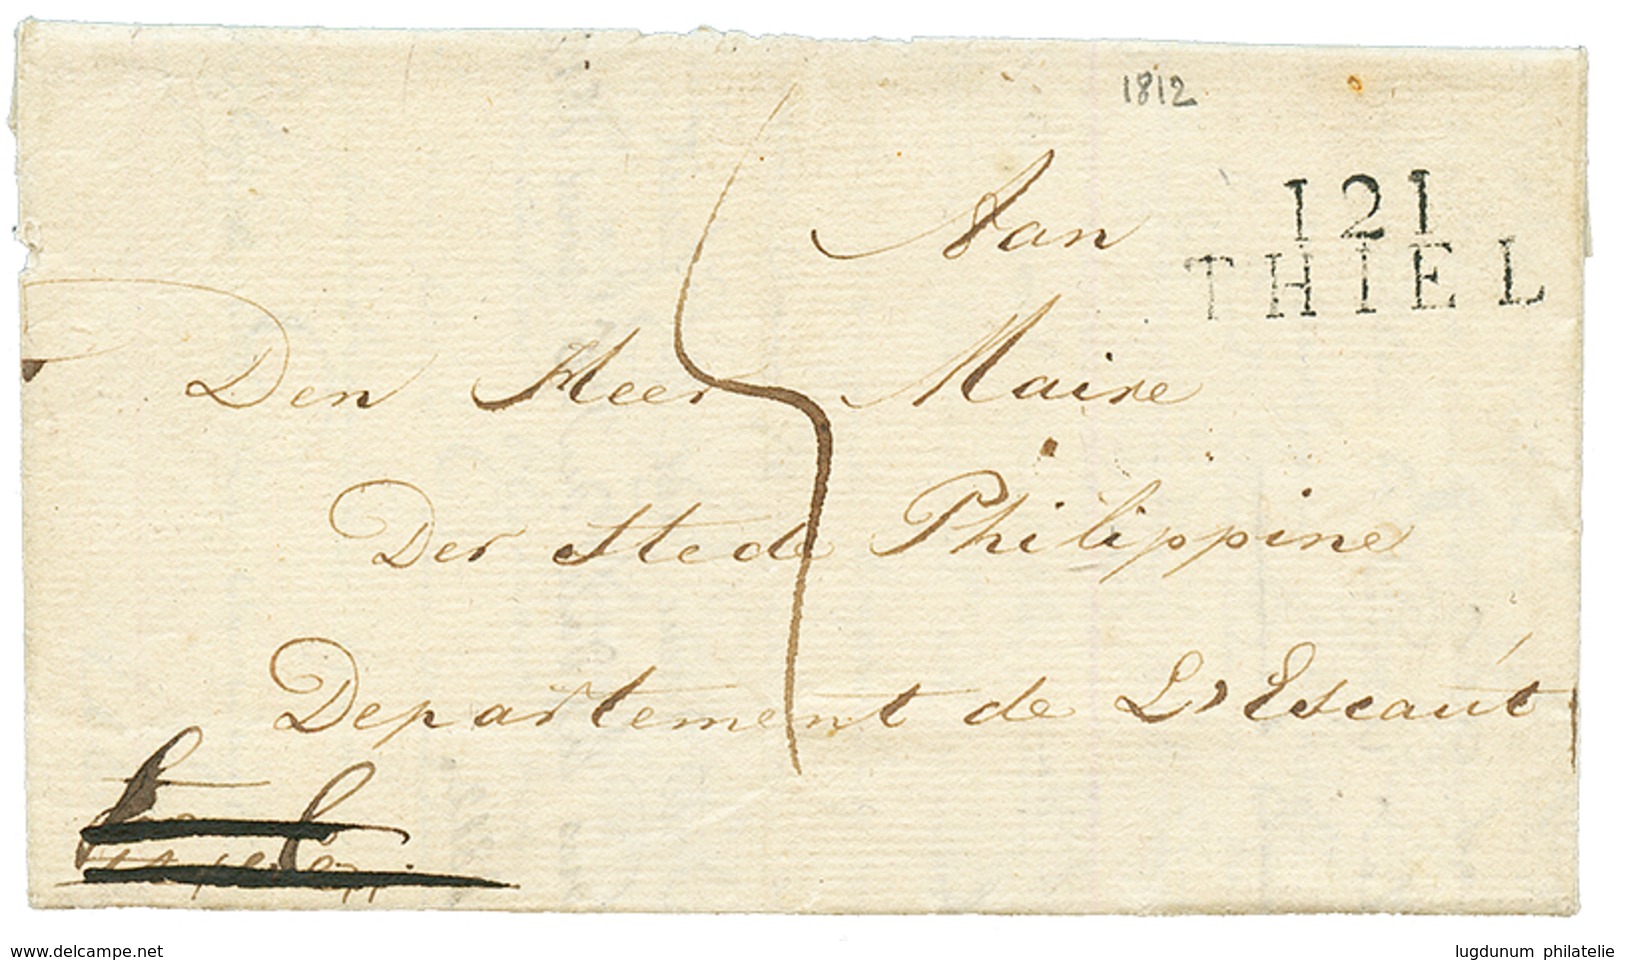 1812
121
THIEL
Aan
Den Heer Maire
Der stede Philippine
Departement de L'Escaut
www.delcampe.net
lugdunum philatelie